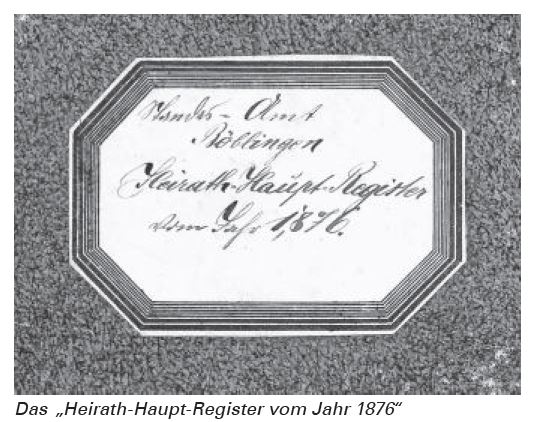 Standes-Amt
Böblingen
Heirath-Haupt-Register
vom Jahr 1876.
Das „Heirath-Haupt-Register vom Jahr 1876“